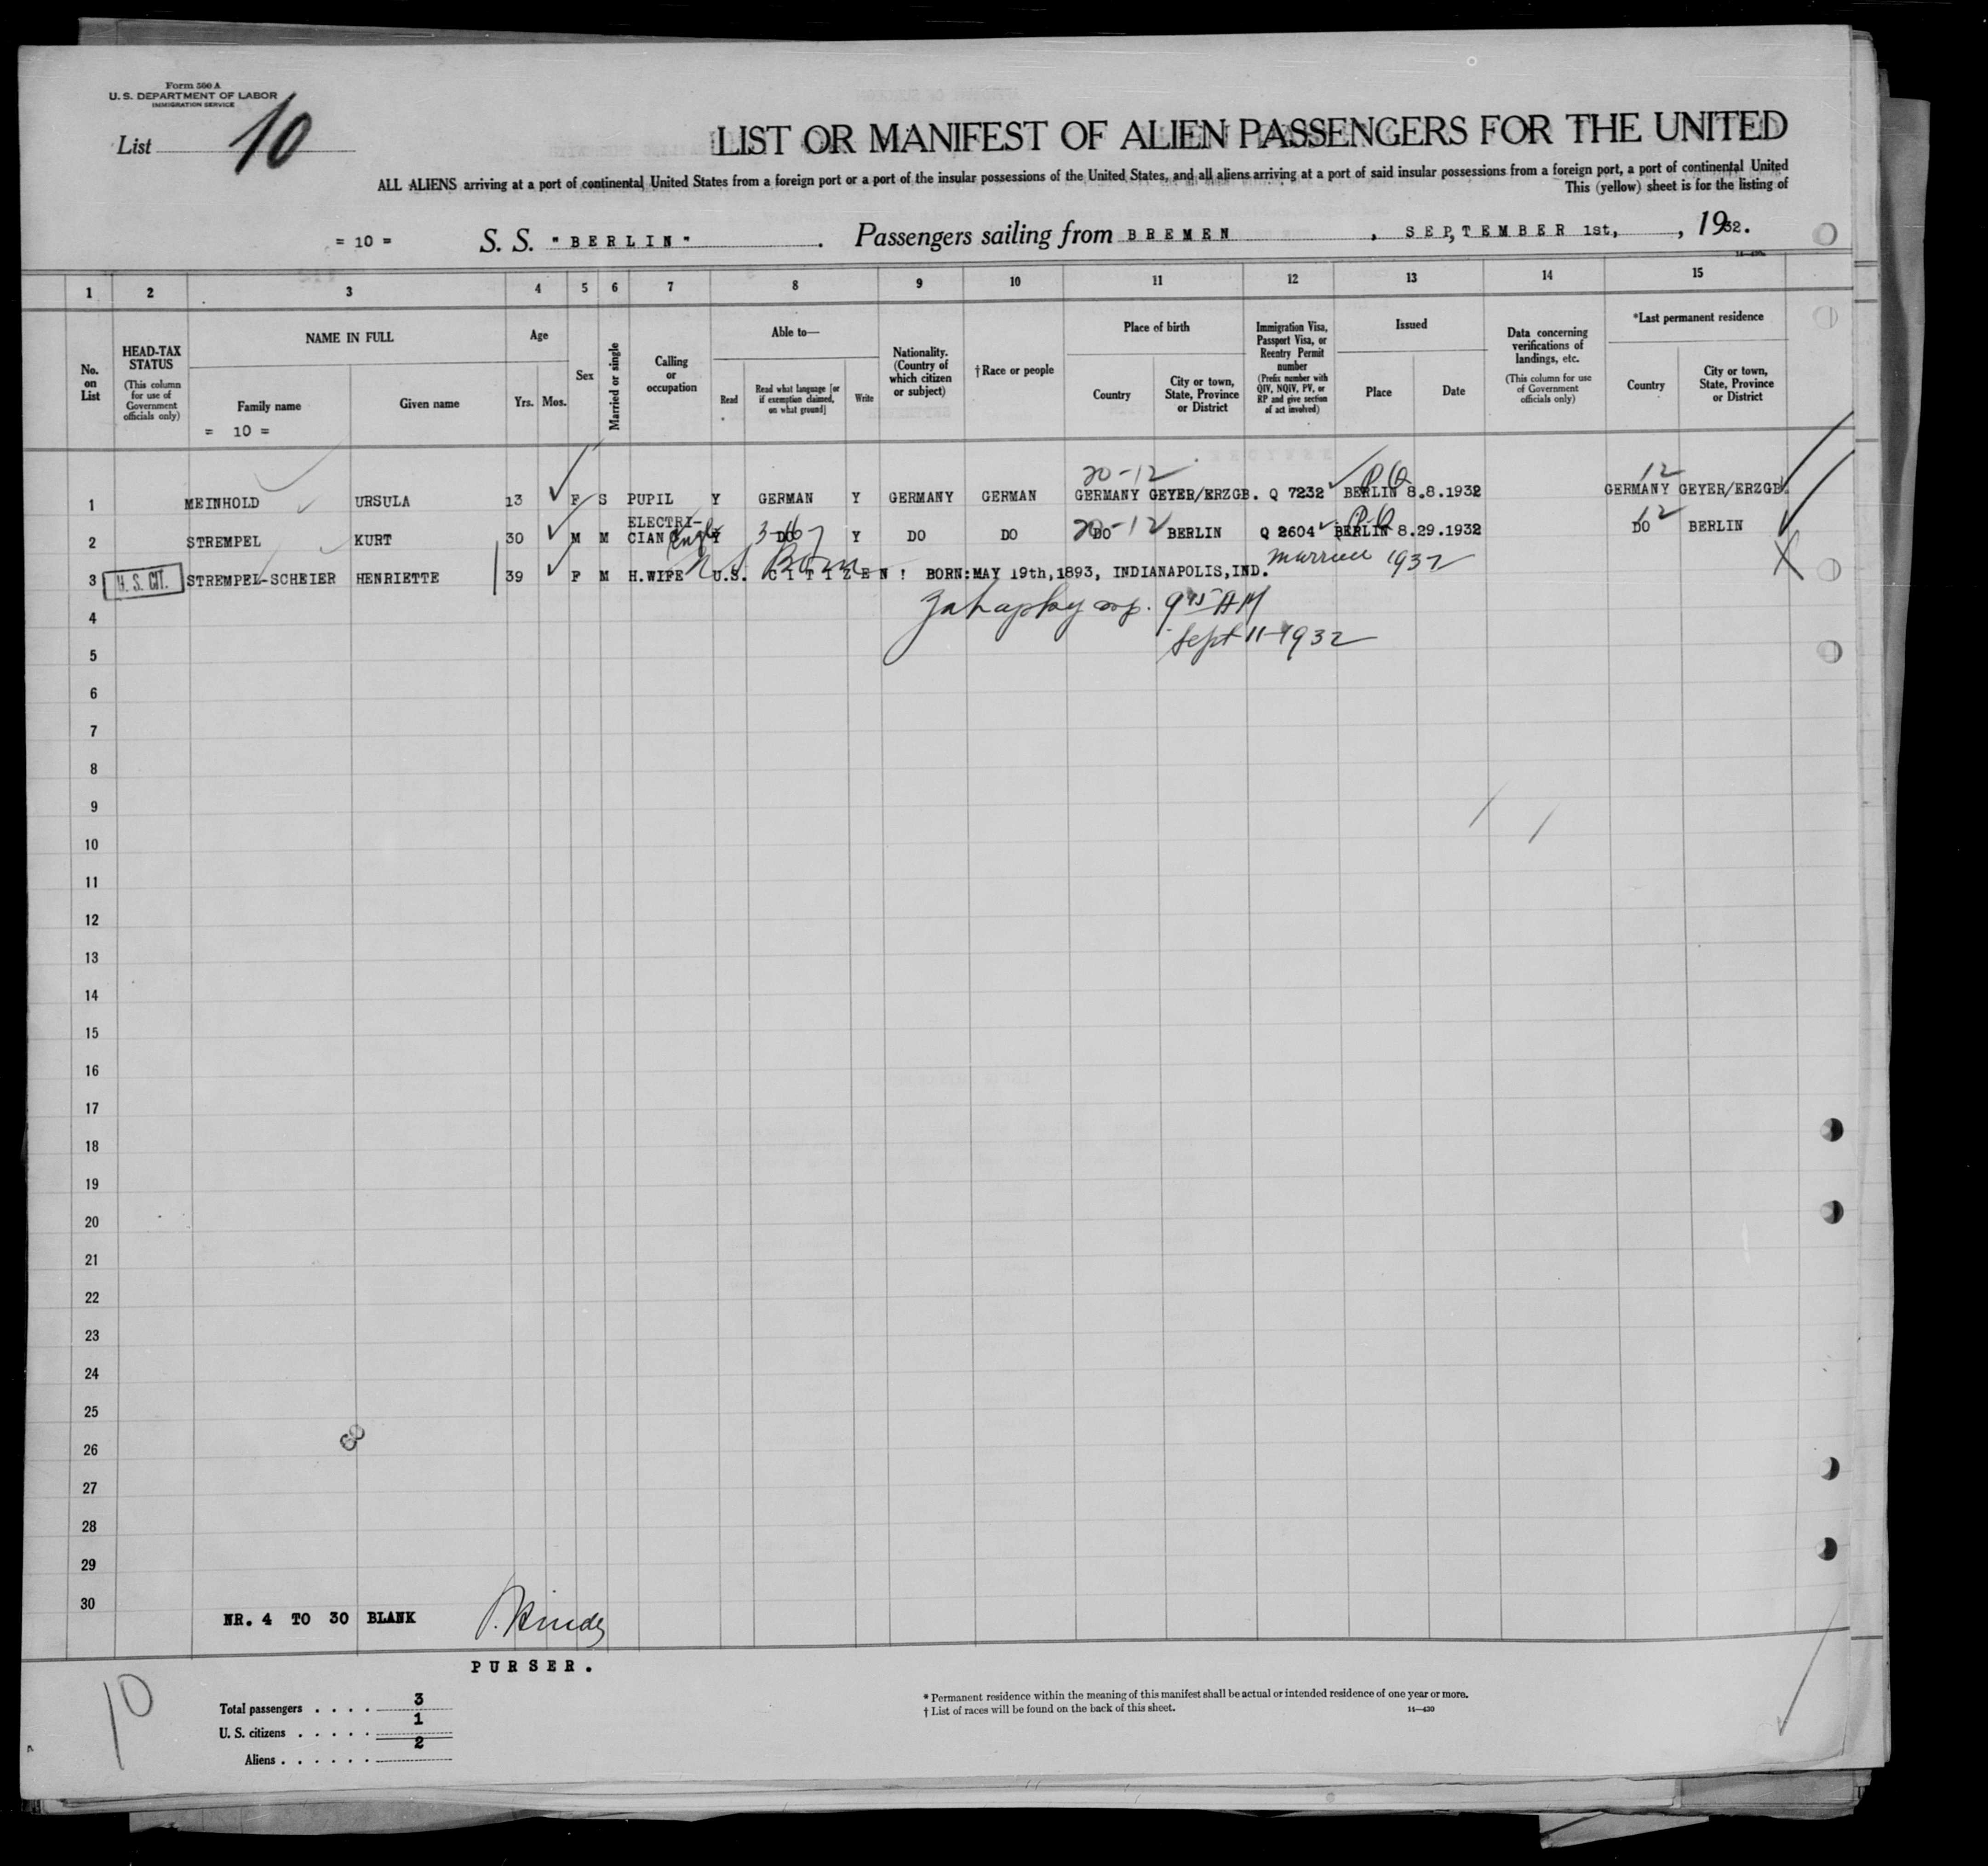 Form 500 A
U. S. DEPARTMENT OF LABOR
IMMIGRATION SERVICE
List 10
LIST OR MANIFEST OF ALIEN PASSENGERS FOR THE UNITED
ALL ALIENS arriving at a port of continental United States from a foreign port or a port of the insular possessions of the United States, and all aliens arriving at a port of said insular possessions from a foreign port, a port of continental United
This (yellow) sheet is for the listing of
= 10 = S. S. "BERLIN". Passengers sailing from BREMEN, SEPTEMBER 1st, , 1932.
1 2 3 4 5 6 7 8 9 10 11 12 13 14 15
No. on List
HEAD-TAX STATUS
(This column for use of Government officials only)
NAME IN FULL
Family name
Given name
= 10 =
Age
Yrs. Mos.
Sex
Married or single
Calling or occupation
Able to—
Read
Read what language [or if exemption claimed, on what ground]
Write
Nationality. (Country of which citizen or subject)
† Race or people
Place of birth
Country
City or town, State, Province or District
Immigration Visa, Passport Visa, or Reentry Permit number
(Prefix number with QIV, NQIV, PV, or RP and give section of act involved)
Issued
Place
Date
Data concerning verifications of landings, etc.
(This column for use of Government officials only)
*Last permanent residence
Country
City or town, State, Province or District
20-12 12
1 MEINHOLD URSULA 13 F S PUPIL Y GERMAN Y GERMANY GERMAN GERMANY GEYER/ERZGB. Q 7232 BERLIN 8.8.1932 GERMANY GEYER/ERZGB.
20-12 12
2 STREMPEL KURT 30 M M ELECTRI-CIAN Y DO Y DO DO DO BERLIN Q 2604 BERLIN 8.29.1932 DO BERLIN
U.S. Born married 1932
3 U. S. CIT. STREMPEL-SCHEIER HENRIETTE 39 F M H.WIFE U.S. CITIZEN! BORN:MAY 19th,1893, INDIANAPOLIS,IND.
4 9 15 AM
5 Sept 11-1932
6
7
8
9
10
11
12
13
14
15
16
17
18
19
20
21
22
23
24
25
26
27
28
29
30
NR. 4 TO 30 BLANK
PURSER.
10
Total passengers . . . . 3
U. S. citizens . . . . . 1
Aliens . . . . . . 2
* Permanent residence within the meaning of this manifest shall be actual or intended residence of one year or more.
† List of races will be found on the back of this sheet.
14—430